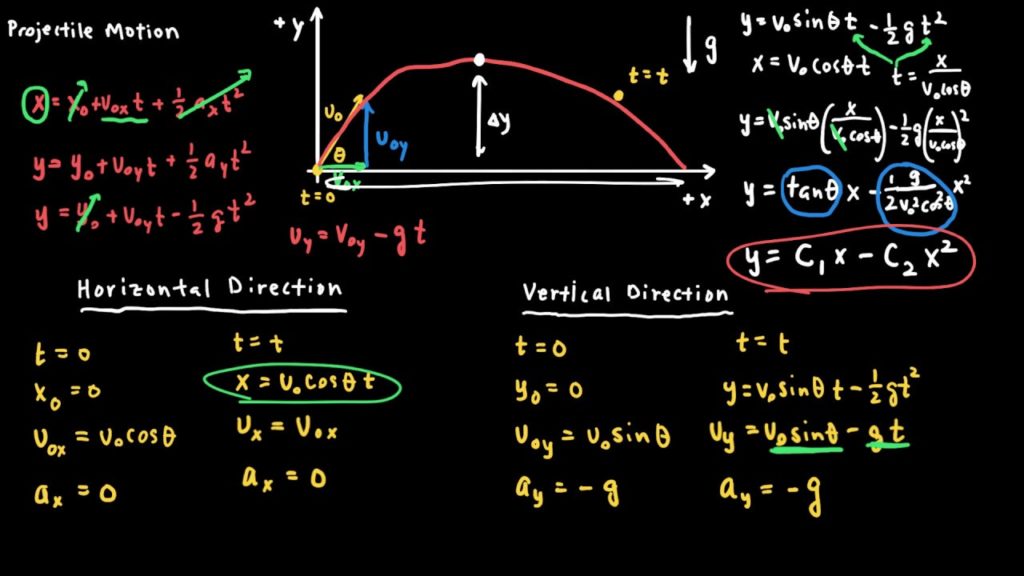 Projectile Motion
x = x₀ + v₀ₓ t + ½ aₓ t²
y = y₀ + v₀y t + ½ ay t²
y = y₀ + v₀y t - ½ g t²
+y
v₀
θ
v₀ₓ
v₀y
Δy
t = t
g
t = 0
+x
vy = v₀y - g t
y = v₀ sinθ t - ½ g t²
x = v₀ cosθ t
t = x / (v₀ cosθ)
y = v₀ sinθ (x / (v₀ cosθ)) - ½ g (x / (v₀ cosθ))²
y = tanθ x - ½ g / (2 v₀² cos²θ) x²
y = C₁ x - C₂ x²
Horizontal Direction
t = 0
x₀ = 0
v₀ₓ = v₀ cosθ
aₓ = 0
t = t
x = v₀ cosθ t
vₓ = v₀ₓ
aₓ = 0
Vertical Direction
t = 0
y₀ = 0
v₀y = v₀ sinθ
ay = -g
t = t
y = v₀ sinθ t - ½ g t²
vy = v₀ sinθ - g t
ay = -g